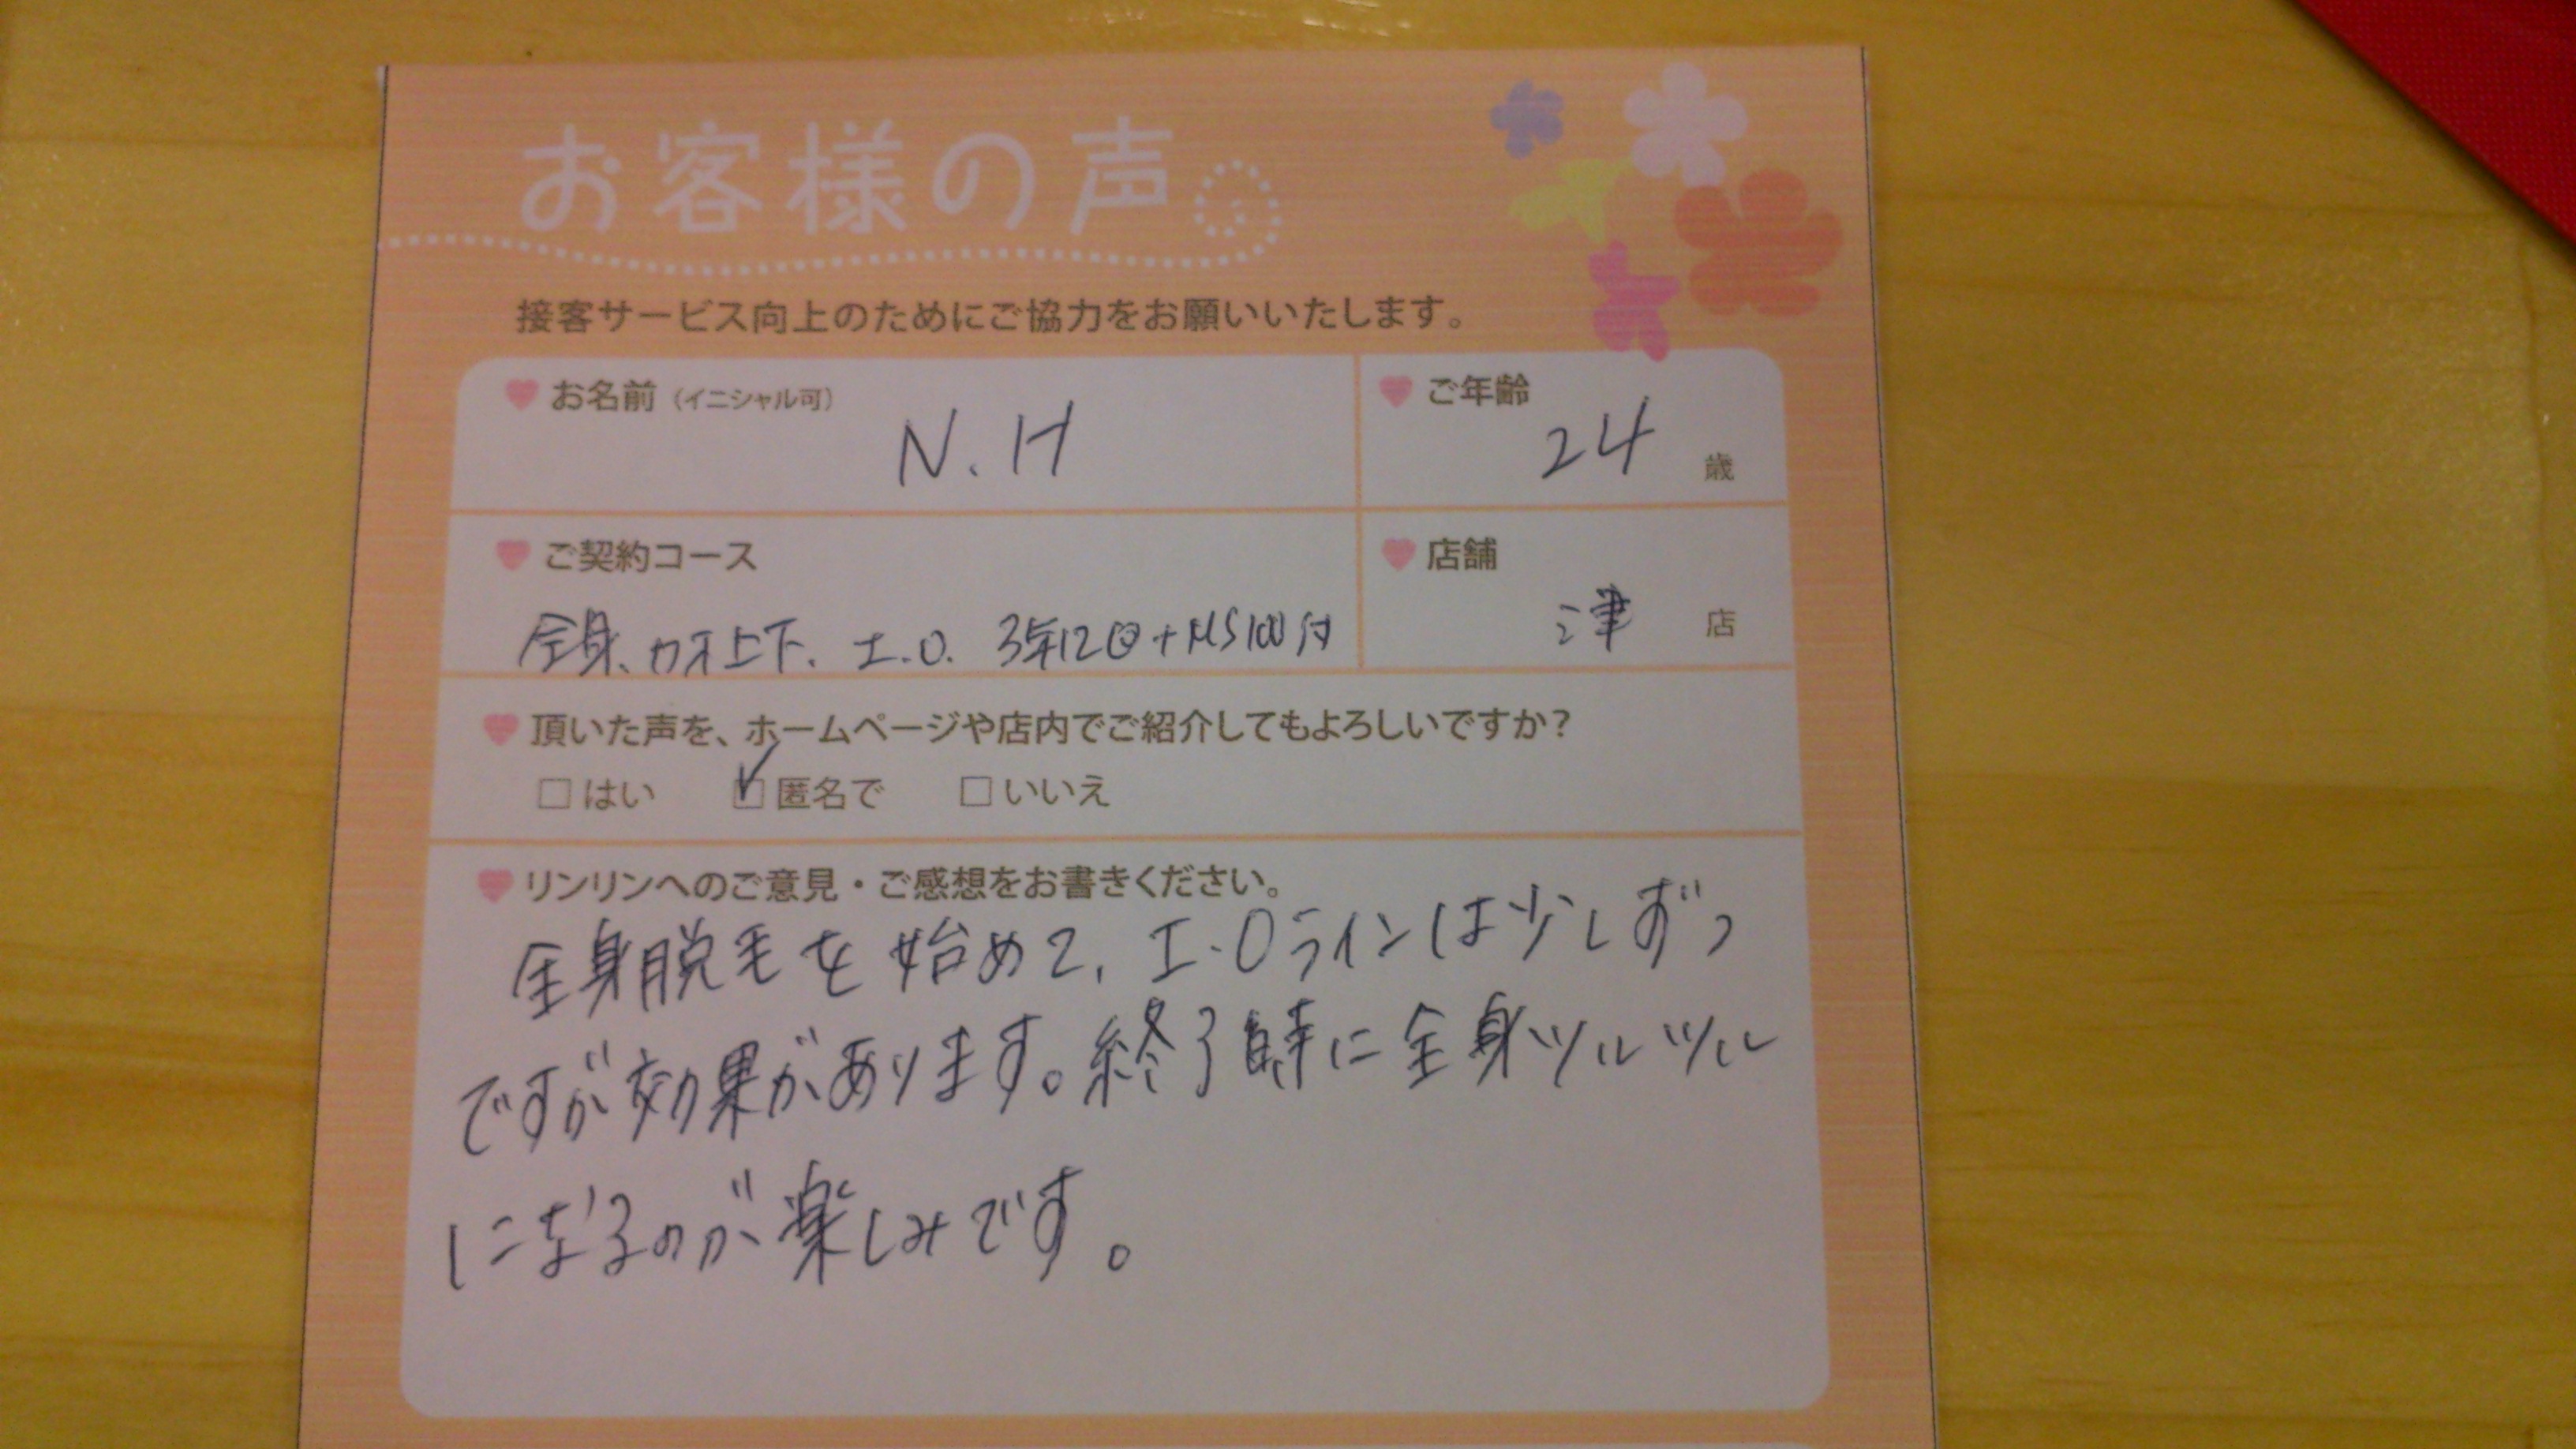 お客様の声
接客サービス向上のためにご協力をお願いいたします。
お名前（イニシャル可） N.H
ご年齢 24 歳
ご契約コース
全身、カオ上下、I.O. 3年12回+MS100分
店舗 津 店
頂いた声を、ホームページや店内でご紹介してもよろしいですか？
□はい ☑匿名で □いいえ
リンリンへのご意見・ご感想をお書きください。
全身脱毛を始めて、I・Oラインは少しずつ
ですが効果があります。終了時に全身ツルツル
になるのが楽しみです。